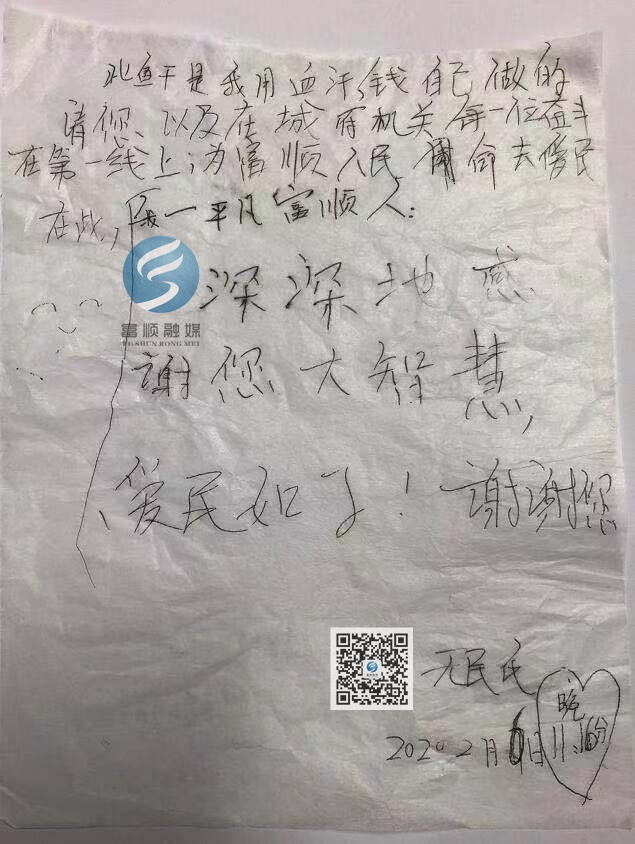 此鱼干是我用血汗钱自己做的
请您、以及在城府机关每一位奋斗
在第一线上;为富顺人民用命去民
在此,我一平凡富顺人:
深深地感
富顺融媒
FU SHUN RONG MEI
谢您大智慧,
爱民如子!谢谢您
无民氏
晚
2020 2月6日11:16分